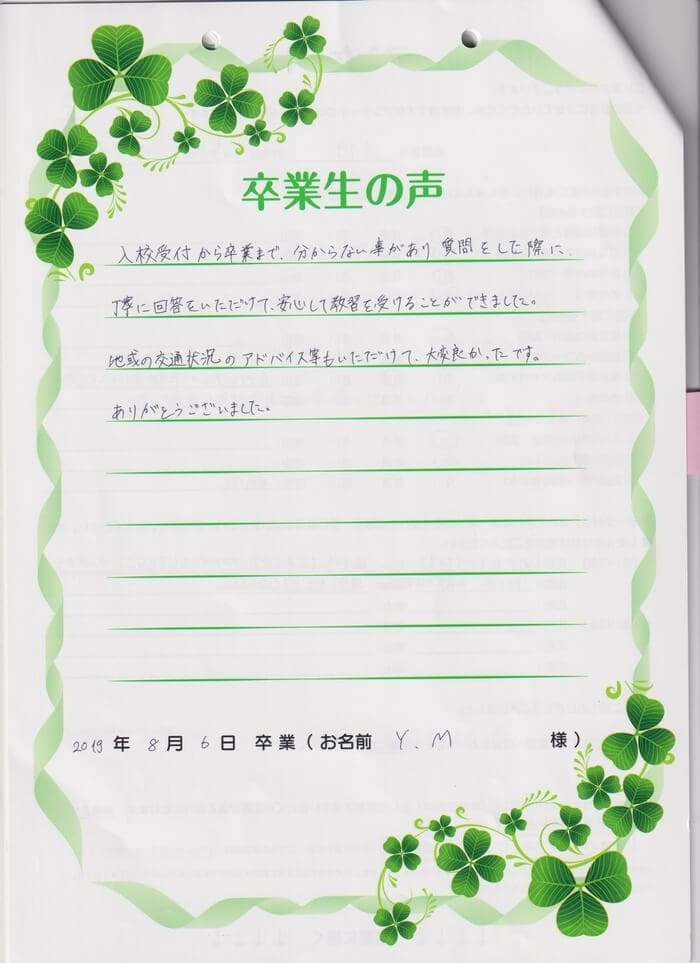 卒業生の声
入校受付から卒業まで、分からない事があり質問をした際に、
丁寧に回答をいただけて、安心して教習を受けることができました。
地域の交通状況のアドバイス等もいただけて、大変良かったです。
ありがとうございました。
2019年 8月 6日 卒業(お名前 Y.M 様)